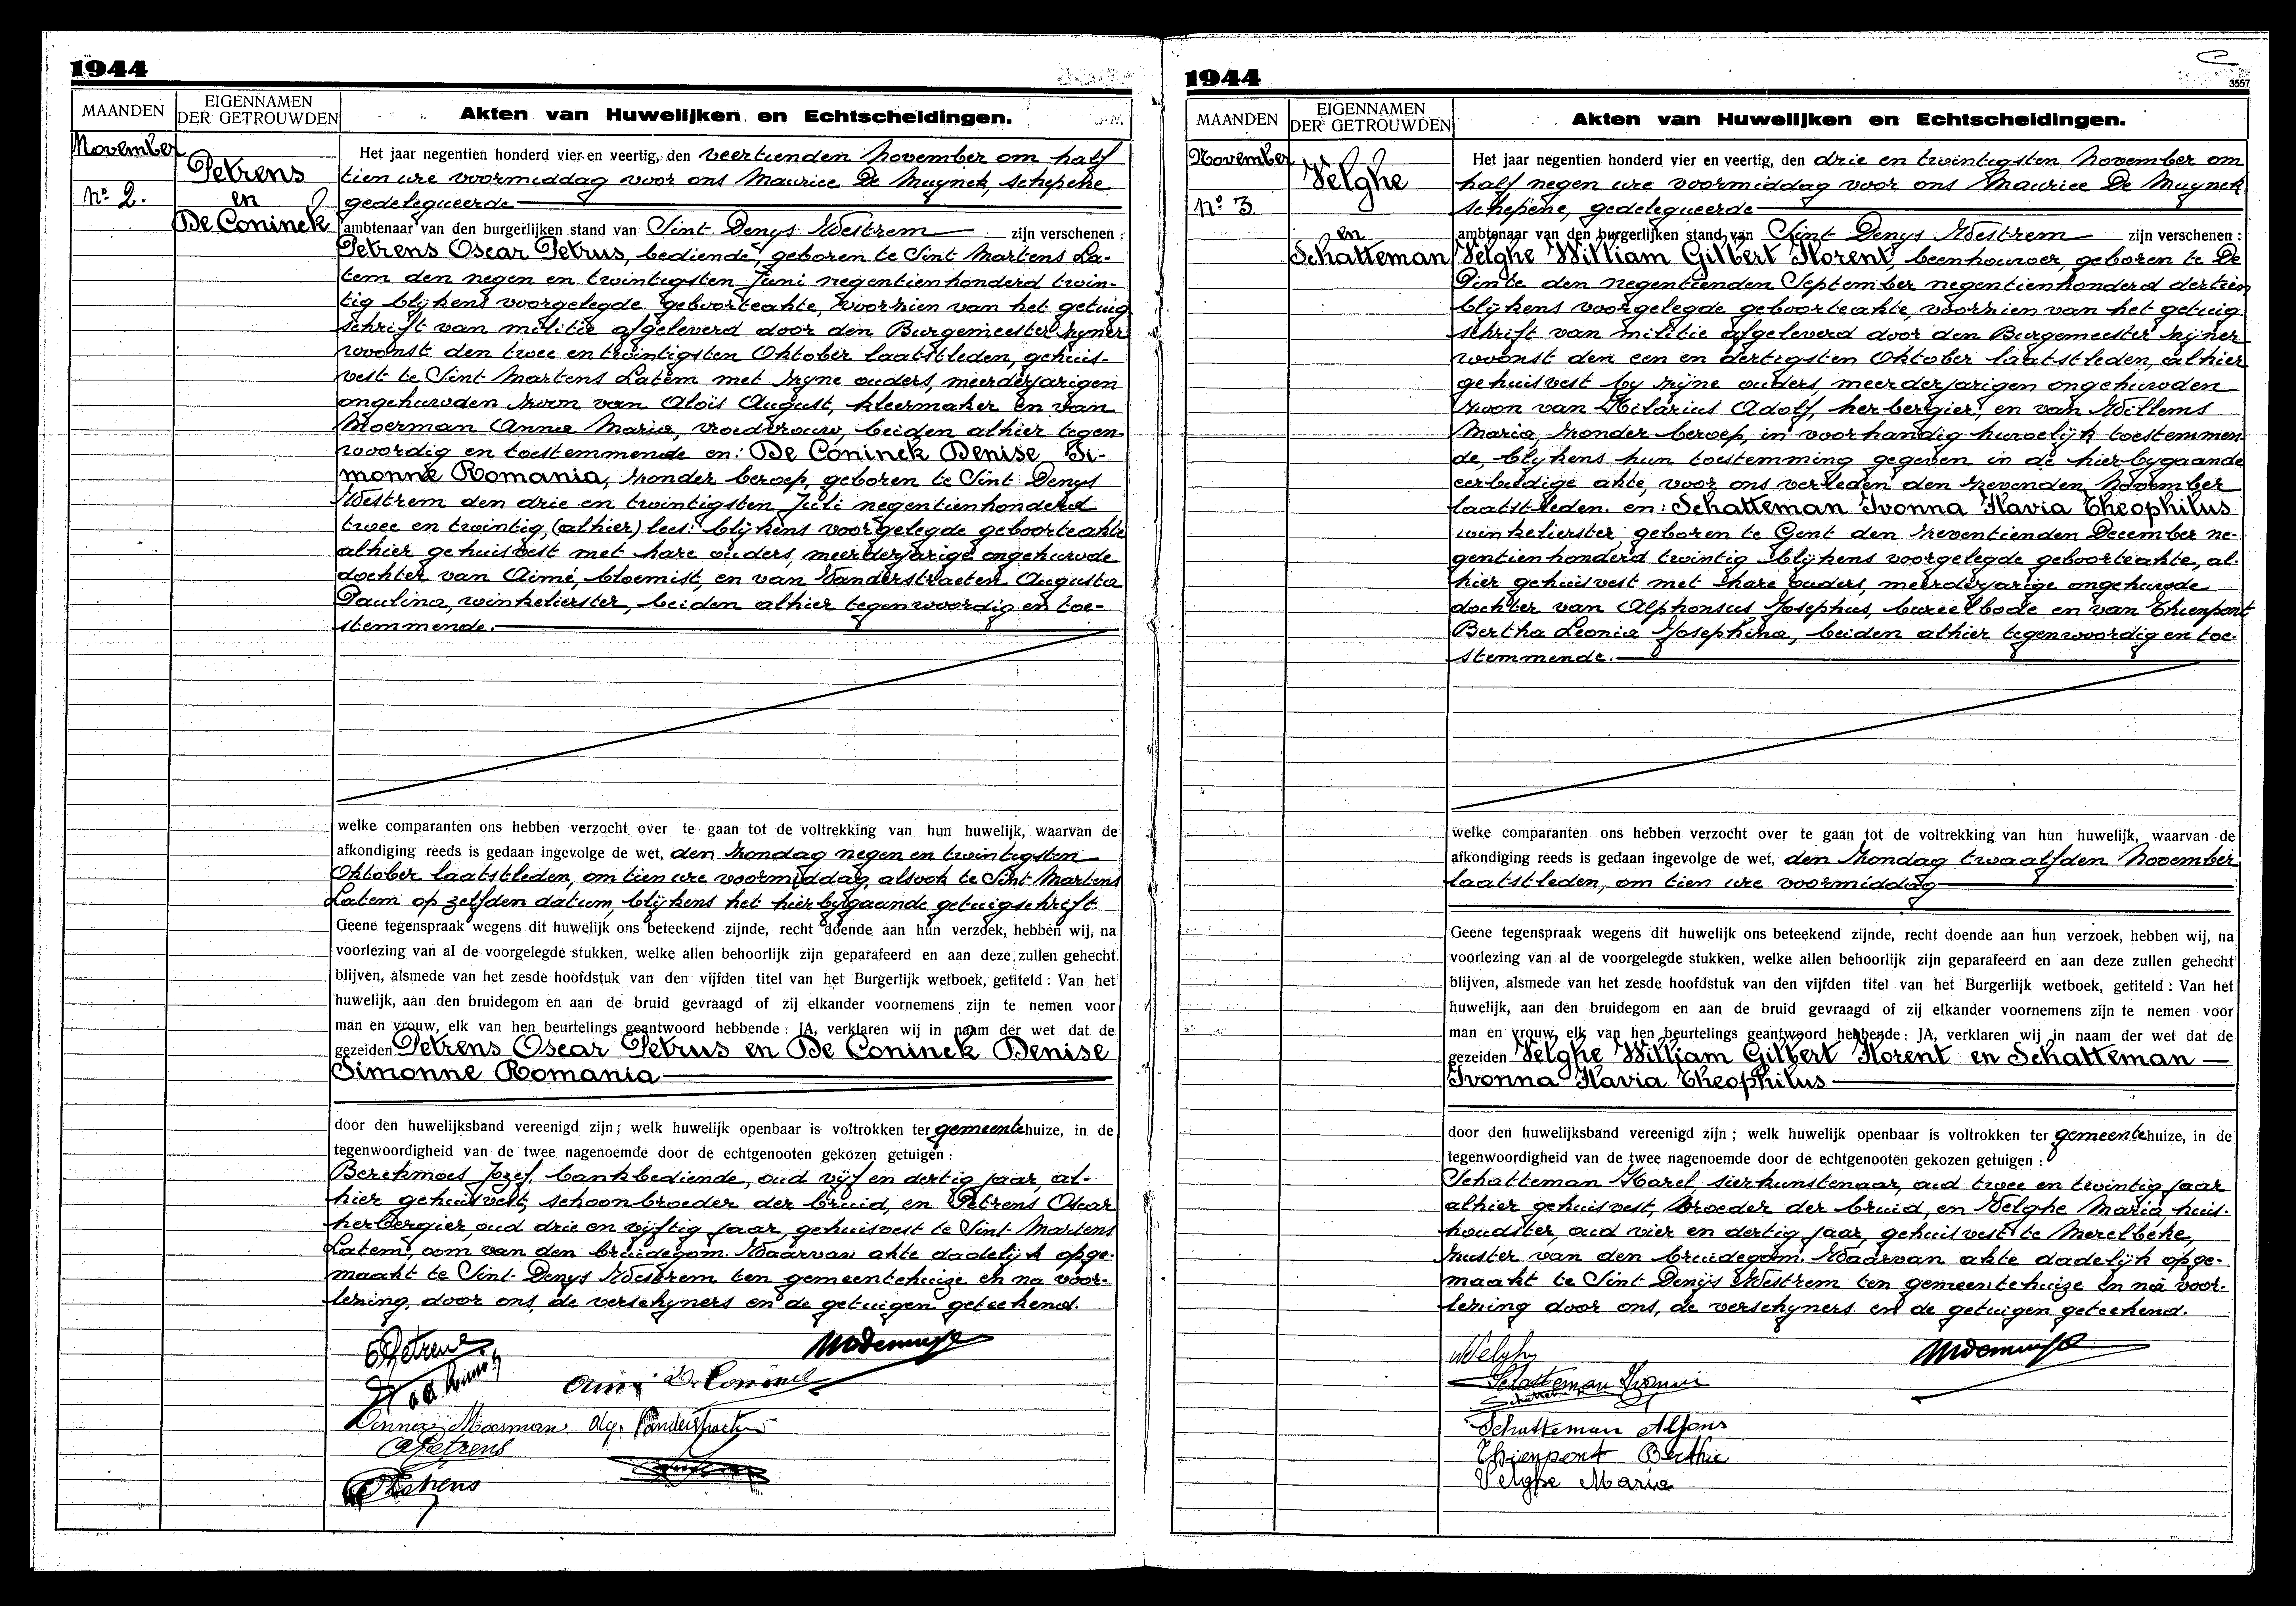 1944
MAANDEN
EIGENNAMEN
DER GETROUWDEN
Akten van Huwelijken en Echtscheidingen.
November
nº 2.
Petrens
en
De Coninck
Het jaar negentien honderd vier en veertig, den veertienden november om half
tien ure voormiddag voor ons Maurice De Muynck, schepene
gedelegueerde
ambtenaar van den burgerlijken stand van Sint Denys Westrem zijn verschenen :
Petrens Oscar Petrus, bediende, geboren te Sint Martens La-
tem den negen en twintigsten Juni negentienhonderd twin-
tig blijkens voorgelegde geboorteakte, voorzien van het getuig
schrift van militie afgeleverd door den Burgemeester zyner
woonst den twee en twintigsten Oktober laatstleden, gehuis-
vest te Sint Martens Latem met zyne ouders, meerderjarigen
ongehuwden zoon van Aloïs August, kleermaker en van
Moerman Anna Maria, vroedvrouw, beiden alhier tegen-
woordig en toestemmende en: De Coninck Denise Si-
monne Romania, zonder beroep, geboren te Sint Denys
Westrem den drie en twintigsten Juli negentienhonderd
twee en twintig, (alhier) lees: blijkens voorgelegde geboorteakte
alhier gehuisvest met hare ouders, meerderjarige ongehuwde
dochter van Aimé, bloemist, en van Vanderstraeten Augusta
Paulina, winkelierster, beiden alhier tegenwoordig en toe-
stemmende.
welke comparanten ons hebben verzocht over te gaan tot de voltrekking van hun huwelijk, waarvan de
afkondiging reeds is gedaan ingevolge de wet, den zondag negen en twintigsten
Oktober laatstleden, om tien ure voormiddag, alsook te Sint Martens
Latem op zelfden datum, blijkens het hierbygaande getuigschrift.
Geene tegenspraak wegens dit huwelijk ons beteekend zijnde, recht doende aan hun verzoek, hebben wij, na
voorlezing van al de voorgelegde stukken, welke allen behoorlijk zijn geparafeerd en aan deze zullen gehecht
blijven, alsmede van het zesde hoofdstuk van den vijfden titel van het Burgerlijk wetboek, getiteld : Van het
huwelijk, aan den bruidegom en aan de bruid gevraagd of zij elkander voornemens zijn te nemen voor
man en vrouw, elk van hen beurtelings geantwoord hebbende : JA, verklaren wij in naam der wet dat de
gezeiden Petrens Oscar Petrus en De Coninck Denise
Simonne Romania
door den huwelijksband vereenigd zijn ; welk huwelijk openbaar is voltrokken ter gemeentehuize, in de
tegenwoordigheid van de twee nagenoemde door de echtgenooten gekozen getuigen :
Berckmoes Jozef, bankbediende, oud vijf en dertig jaar, al-
hier gehuisvest, schoonbroeder der bruid, en Petrens Oscar
herbergier, oud drie en vyftig jaar, gehuisvest te Sint Martens
Latem, oom van den bruidegom. Waarvan akte dadelijk opge-
maakt te Sint-Denys Westrem ten gemeentehuize en na voor-
lezing, door ons, de verschyners en de getuigen geteekend.
OPetrens
Anna Moerman Aug. Vanderstraeten
APetrens
OPetrens
1944
3557
MAANDEN
EIGENNAMEN
DER GETROUWDEN
Akten van Huwelijken en Echtscheidingen.
November
nº 3.
Velghe
en
Schatteman
Het jaar negentien honderd vier en veertig, den drie en twintigsten november om
half negen ure voormiddag voor ons Maurice De Muynck
schepene, gedelegueerde
ambtenaar van den burgerlijken stand van Sint Denys Westrem zijn verschenen :
Velghe William Gilbert Florent, beenhouwer, geboren te De
Pinte den negentienden September negentienhonderd dertien
blijkens voorgelegde geboorteakte, voorzien van het getuig-
schrift van militie afgeleverd door den Burgemeester zijner
woonst den een en dertigsten Oktober laatstleden, alhier
gehuisvest by zijne ouders, meerderjarigen ongehuwden
zoon van Hilarius Adolf, herbergier, en van Willems
Maria, zonder beroep, in voorhandig huwelijk toestemmen-
de, blijkens hun toestemming gegeven in de hierbygaande
eerbiedige akte, voor ons verleden den zevenden November
laatstleden. en: Schatteman Ivonna Flavia Theophilus
winkelierster, geboren te Gent den zeventienden December ne-
gentienhonderd twintig blijkens voorgelegde geboorteakte, al-
hier gehuisvest met hare ouders, meerderjarige ongehuwde
dochter van Alphonsus Josephus, bureelbode en van Thienpont
Bertha Leonia Josephina, beiden alhier tegenwoordig en toe-
stemmende.
welke comparanten ons hebben verzocht over te gaan tot de voltrekking van hun huwelijk, waarvan de
afkondiging reeds is gedaan ingevolge de wet, den zondag twaalfden November
laatstleden, om tien ure voormiddag
Geene tegenspraak wegens dit huwelijk ons beteekend zijnde, recht doende aan hun verzoek, hebben wij, na
voorlezing van al de voorgelegde stukken, welke allen behoorlijk zijn geparafeerd en aan deze zullen gehecht
blijven, alsmede van het zesde hoofdstuk van den vijfden titel van het Burgerlijk wetboek, getiteld : Van het
huwelijk, aan den bruidegom en aan de bruid gevraagd of zij elkander voornemens zijn te nemen voor
man en vrouw, elk van hen beurtelings geantwoord hebbende : JA, verklaren wij in naam der wet dat de
gezeiden Velghe William Gilbert Florent en Schatteman
Ivonna Flavia Theophilus
door den huwelijksband vereenigd zijn ; welk huwelijk openbaar is voltrokken ter gemeentehuize, in de
tegenwoordigheid van de twee nagenoemde door de echtgenooten gekozen getuigen :
Schatteman Karel, sierkunstenaar, oud twee en twintig jaar
alhier gehuisvest, broeder der bruid, en Velghe Maria, huis-
houdster, oud vier en dertig jaar, gehuisvest te Merelbeke,
zuster van den bruidegom. Waarvan akte dadelijk opge-
maakt te Sint Denijs Westrem ten gemeentehuize en na voor-
lezing door ons, de verschyners en de getuigen geteekend.
WVelghe
Schatteman Ivonne
Schatteman K
Schatteman Alfons
Thienpont Berthe
Velghe Maria